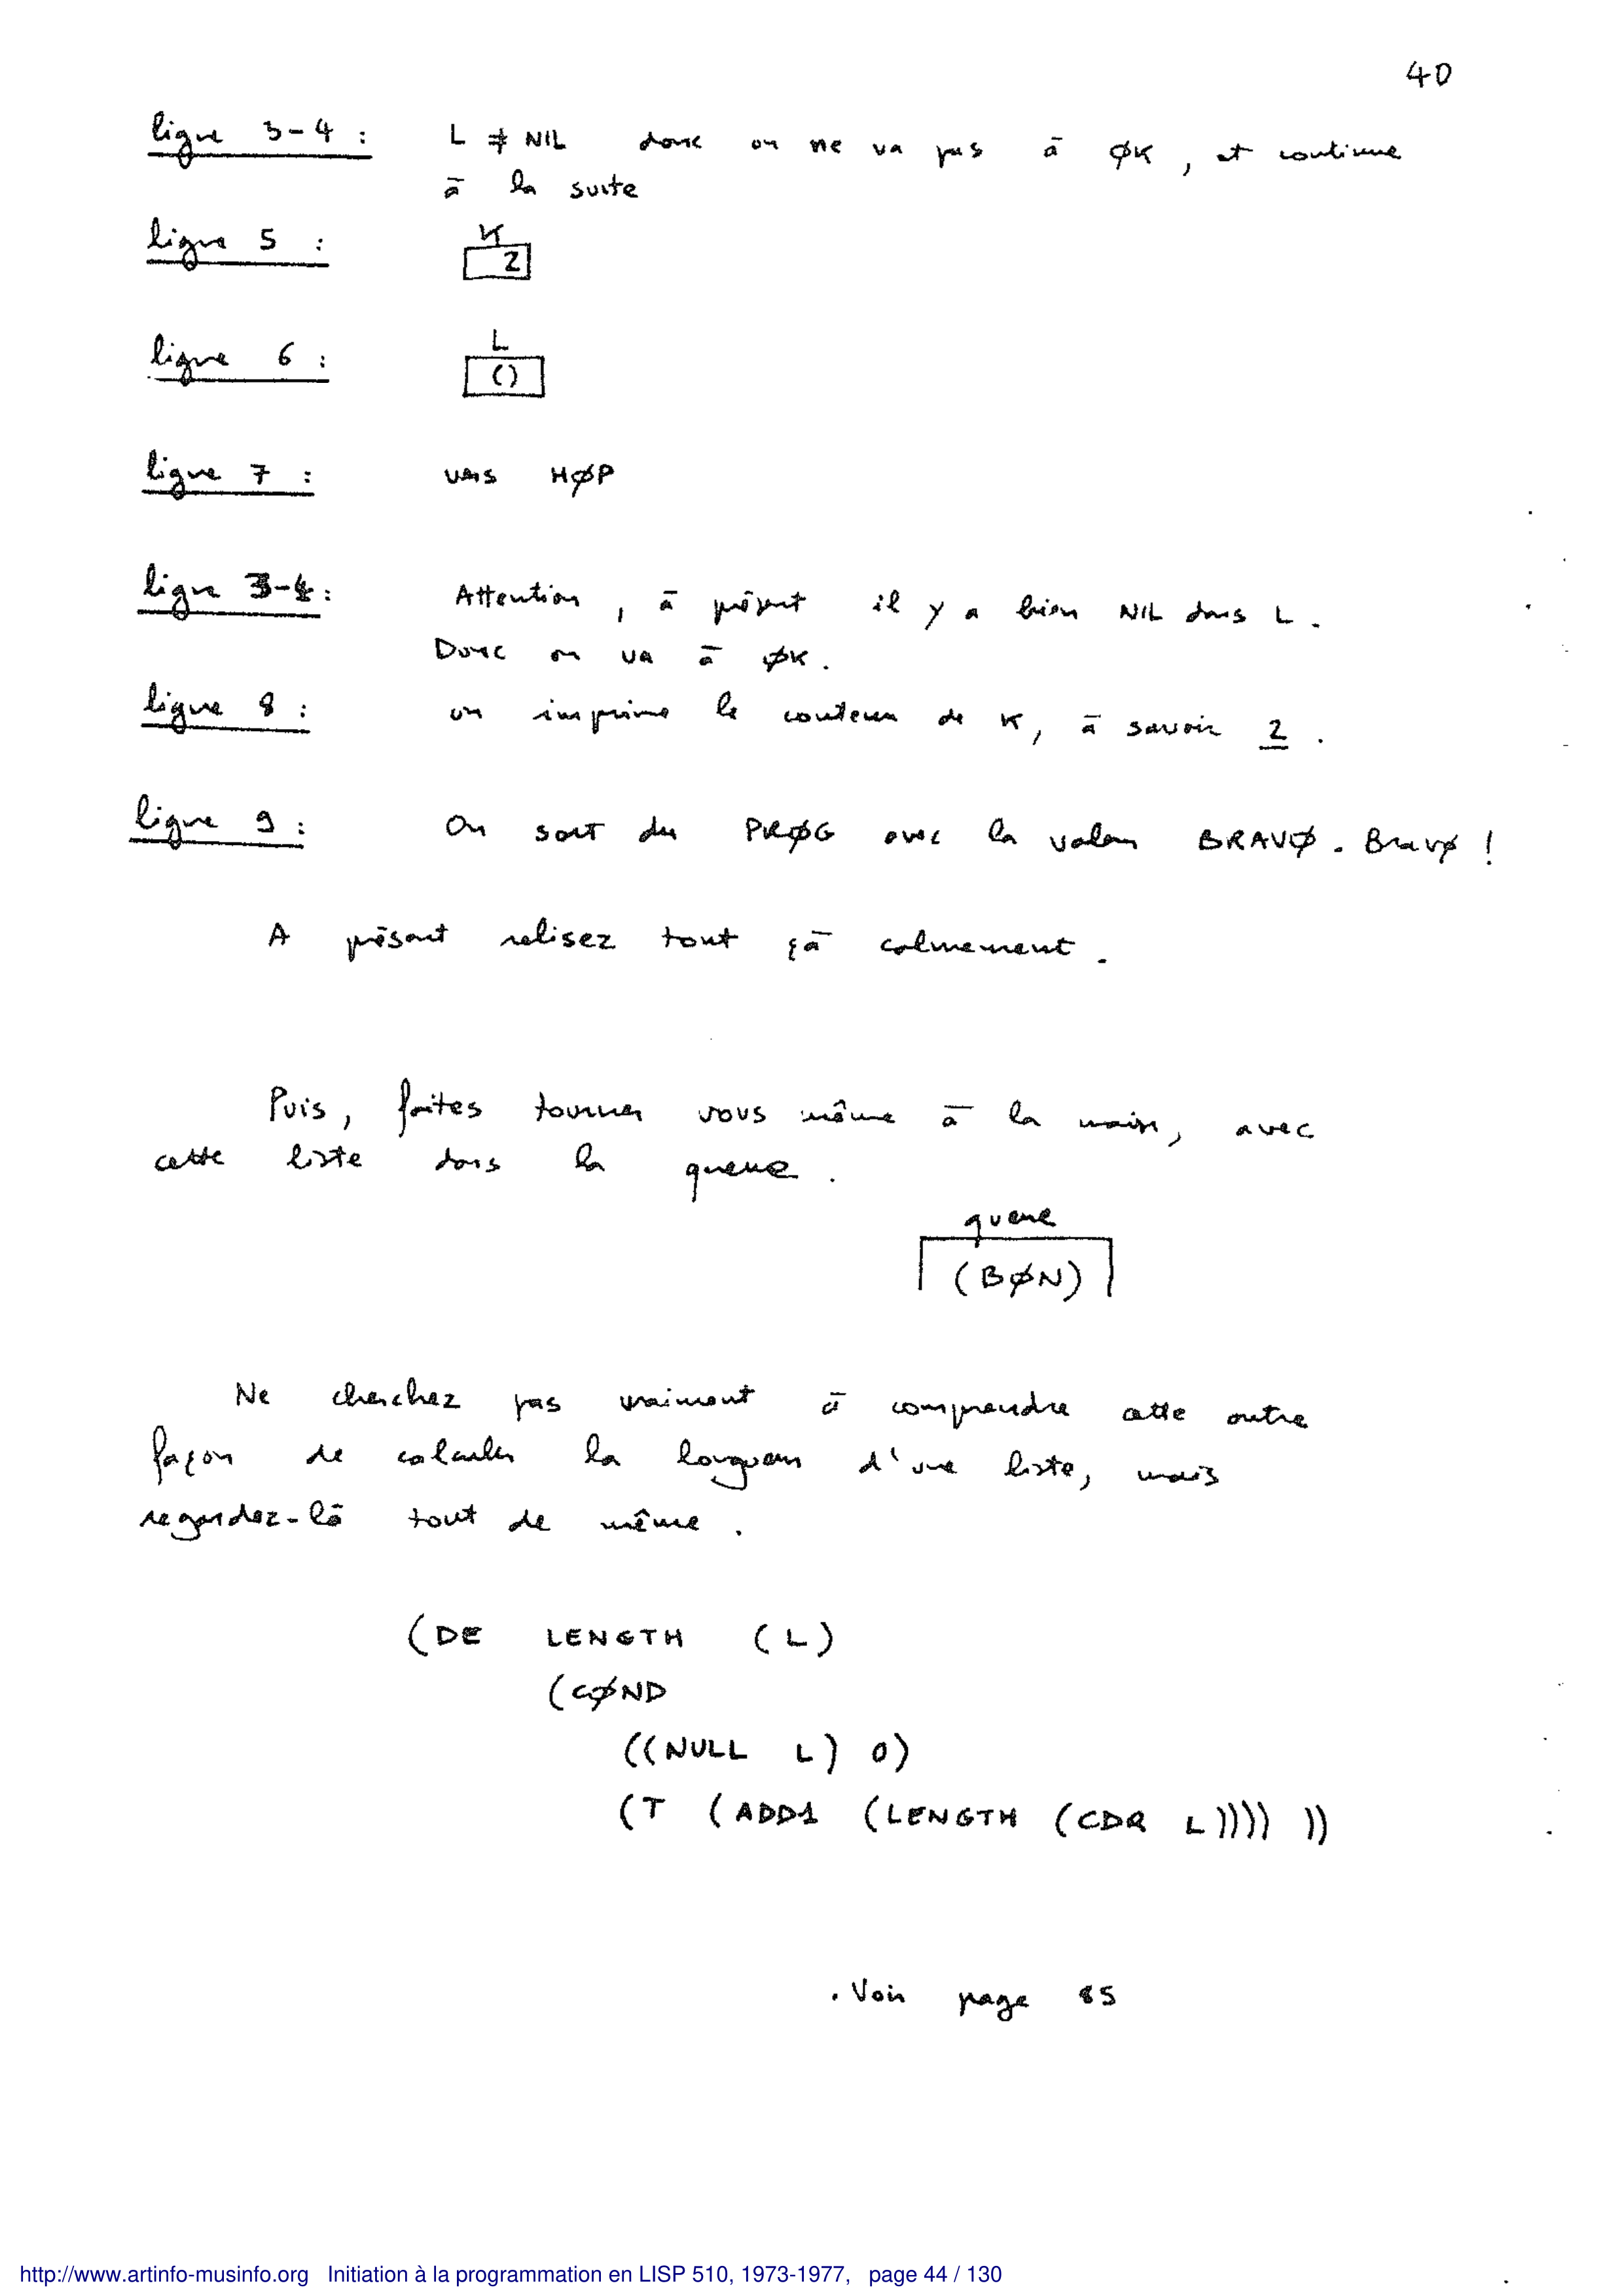 40
ligne 3-4 : L ≠ NIL donc on ne va pas à ØK, et continue
à la suite
ligne 5 : K
2
ligne 6 : L
()
ligne 7 : vais HØP
ligne 3-4 : Attention, à présent il y a bien NIL dans L.
Donc on va à ØK.
ligne 8 : on imprime le contenu de K, à savoir 2.
ligne 9 : On sort du PRØG avec la valeur BRAVØ. Bravø !
A présent relisez tout çà calmement.
Puis, faites tourner vous même à la main, avec
cette liste dans la queue.
queue
(BØN)
Ne cherchez pas vraiment à comprendre cette autre
façon de calculer la longueur d'une liste, mais
regardez-là tout de même.
(DE LENGTH (L)
(CØND
((NULL L) 0)
(T (ADD1 (LENGTH (CDR L)))) ))
. Voir page 85
http://www.artinfo-musinfo.org Initiation à la programmation en LISP 510, 1973-1977, page 44 / 130